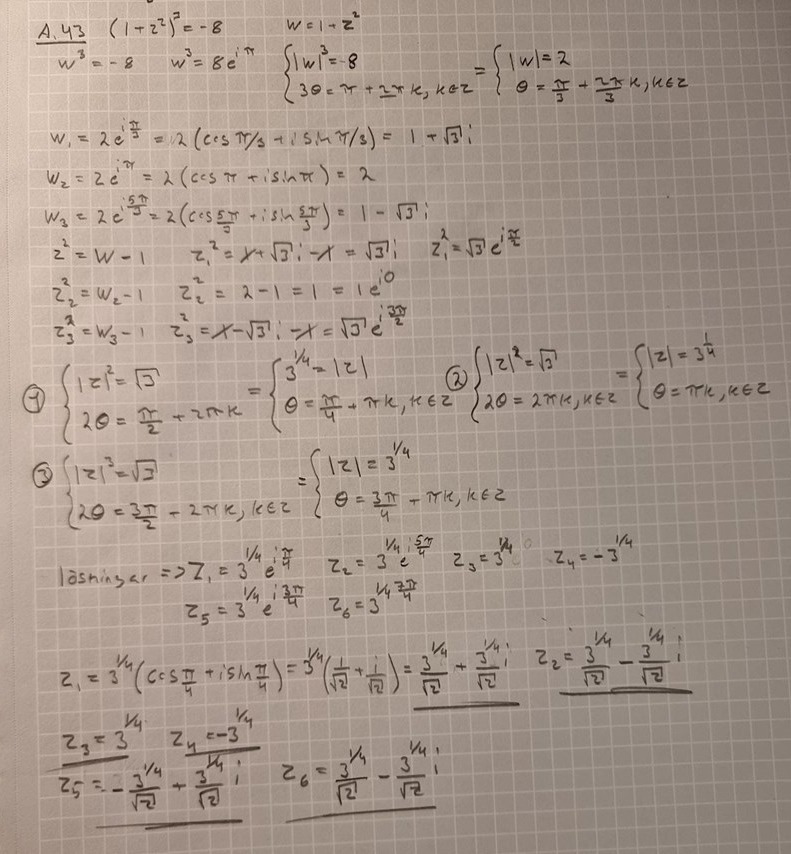 A.43 (1+z²)³ = -8 w = 1+z²
w³ = -8 w³ = 8e^{iπ} { |w|³ = -8 = { |w| = 2
3θ = π + 2πk, k∈z θ = π/3 + 2π/3 k, k∈z
w₁ = 2e^{iπ/3} = 2(cos π/3 + i sin π/3) = 1 + √3 i
w₂ = 2e^{iπ} = 2(cos π + i sin π) = 2
w₃ = 2e^{i5π/3} = 2(cos 5π/3 + i sin 5π/3) = 1 - √3 i
z² = w - 1 z₁² = 1 + √3 i - 1 = √3 i z₁² = √3 e^{iπ/2}
z₂² = w₂ - 1 z₂² = 2 - 1 = 1 = 1e^{i0}
z₃² = w₃ - 1 z₃² = 1 - √3 i - 1 = √3 e^{i3π/2}
① { |z|² = √3 = { 3^{1/4} = |z| ② { |z|² = √3 = { |z| = 3^{1/4}
2θ = π/2 + 2πk θ = π/4 + πk, k∈z 2θ = 2πk, k∈z θ = πk, k∈z
③ { |z|³ = √3 = { |z| = 3^{1/4}
2θ = 3π/2 - 2πk, k∈z θ = 3π/4 - πk, k∈z
lösningar => z₁ = 3^{1/4} e^{iπ/4} z₂ = 3^{1/4} e^{i5π/4} z₃ = 3^{1/4} z₄ = -3^{1/4}
z₅ = 3^{1/4} e^{i3π/4} z₆ = 3^{1/4 7π/4}
z₁ = 3^{1/4}(cos π/4 + i sin π/4) = 3^{1/4}(1/√2 + i/√2) = 3^{1/4}/√2 + 3^{1/4}/√2 i z₂ = 3^{1/4}/√2 - 3^{1/4}/√2 i
z₃ = 3^{1/4} z₄ = -3^{1/4}
z₅ = -3^{1/4}/√2 + 3^{1/4}/√2 i z₆ = 3^{1/4}/√2 - 3^{1/4}/√2 i